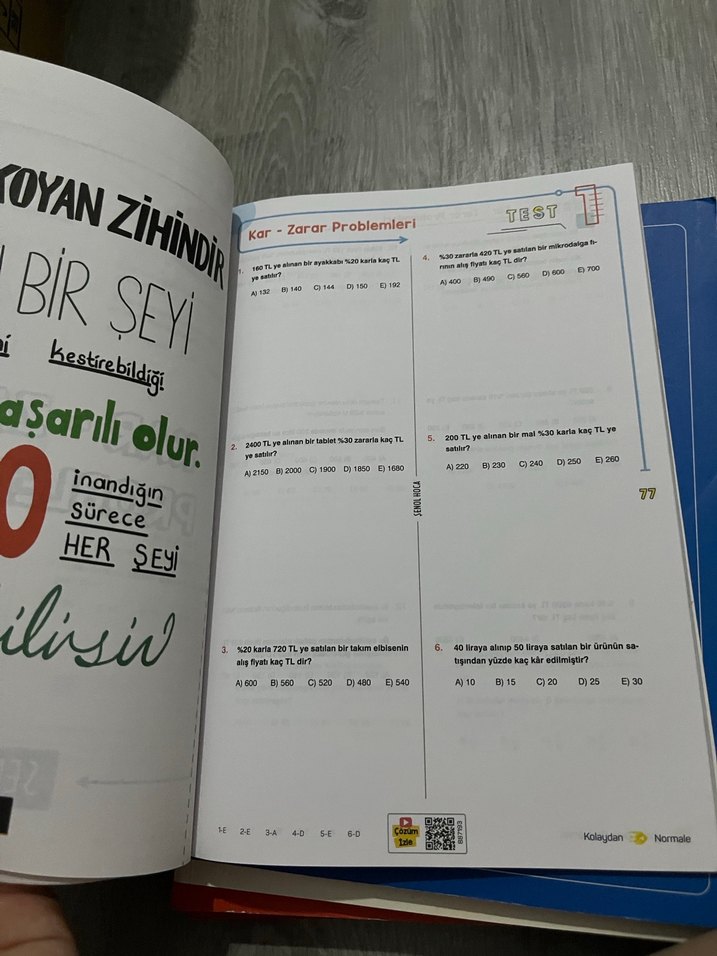 KOYAN ZİHİNDİR
BİR ŞEYİ
kestirebildiği
aşarılı olur.
0
inandığın
sürece
HER ŞEYİ
Kar - Zarar Problemleri
TEST 1
1. 160 TL ye alınan bir ayakkabı %20 karla kaç TL
ye satılır?
A) 132 B) 140 C) 144 D) 150 E) 192
2. 2400 TL ye alınan bir tablet %30 zararla kaç TL
ye satılır?
A) 2150 B) 2000 C) 1900 D) 1850 E) 1680
3. %20 karla 720 TL ye satılan bir takım elbisenin
alış fiyatı kaç TL dir?
A) 600 B) 560 C) 520 D) 480 E) 540
ŞENOL HOCA
4. %30 zararla 420 TL ye satılan bir mikrodalga fı-
rının alış fiyatı kaç TL dir?
A) 400 B) 490 C) 560 D) 600 E) 700
5. 200 TL ye alınan bir mal %30 karla kaç TL ye
satılır?
A) 220 B) 230 C) 240 D) 250 E) 260
77
6. 40 liraya alınıp 50 liraya satılan bir ürünün sa-
tışından yüzde kaç kâr edilmiştir?
A) 10 B) 15 C) 20 D) 25 E) 30
1-E 2-E 3-A 4-D 5-E 6-D
Çözüm
İzle
887193
Kolaydan Normale